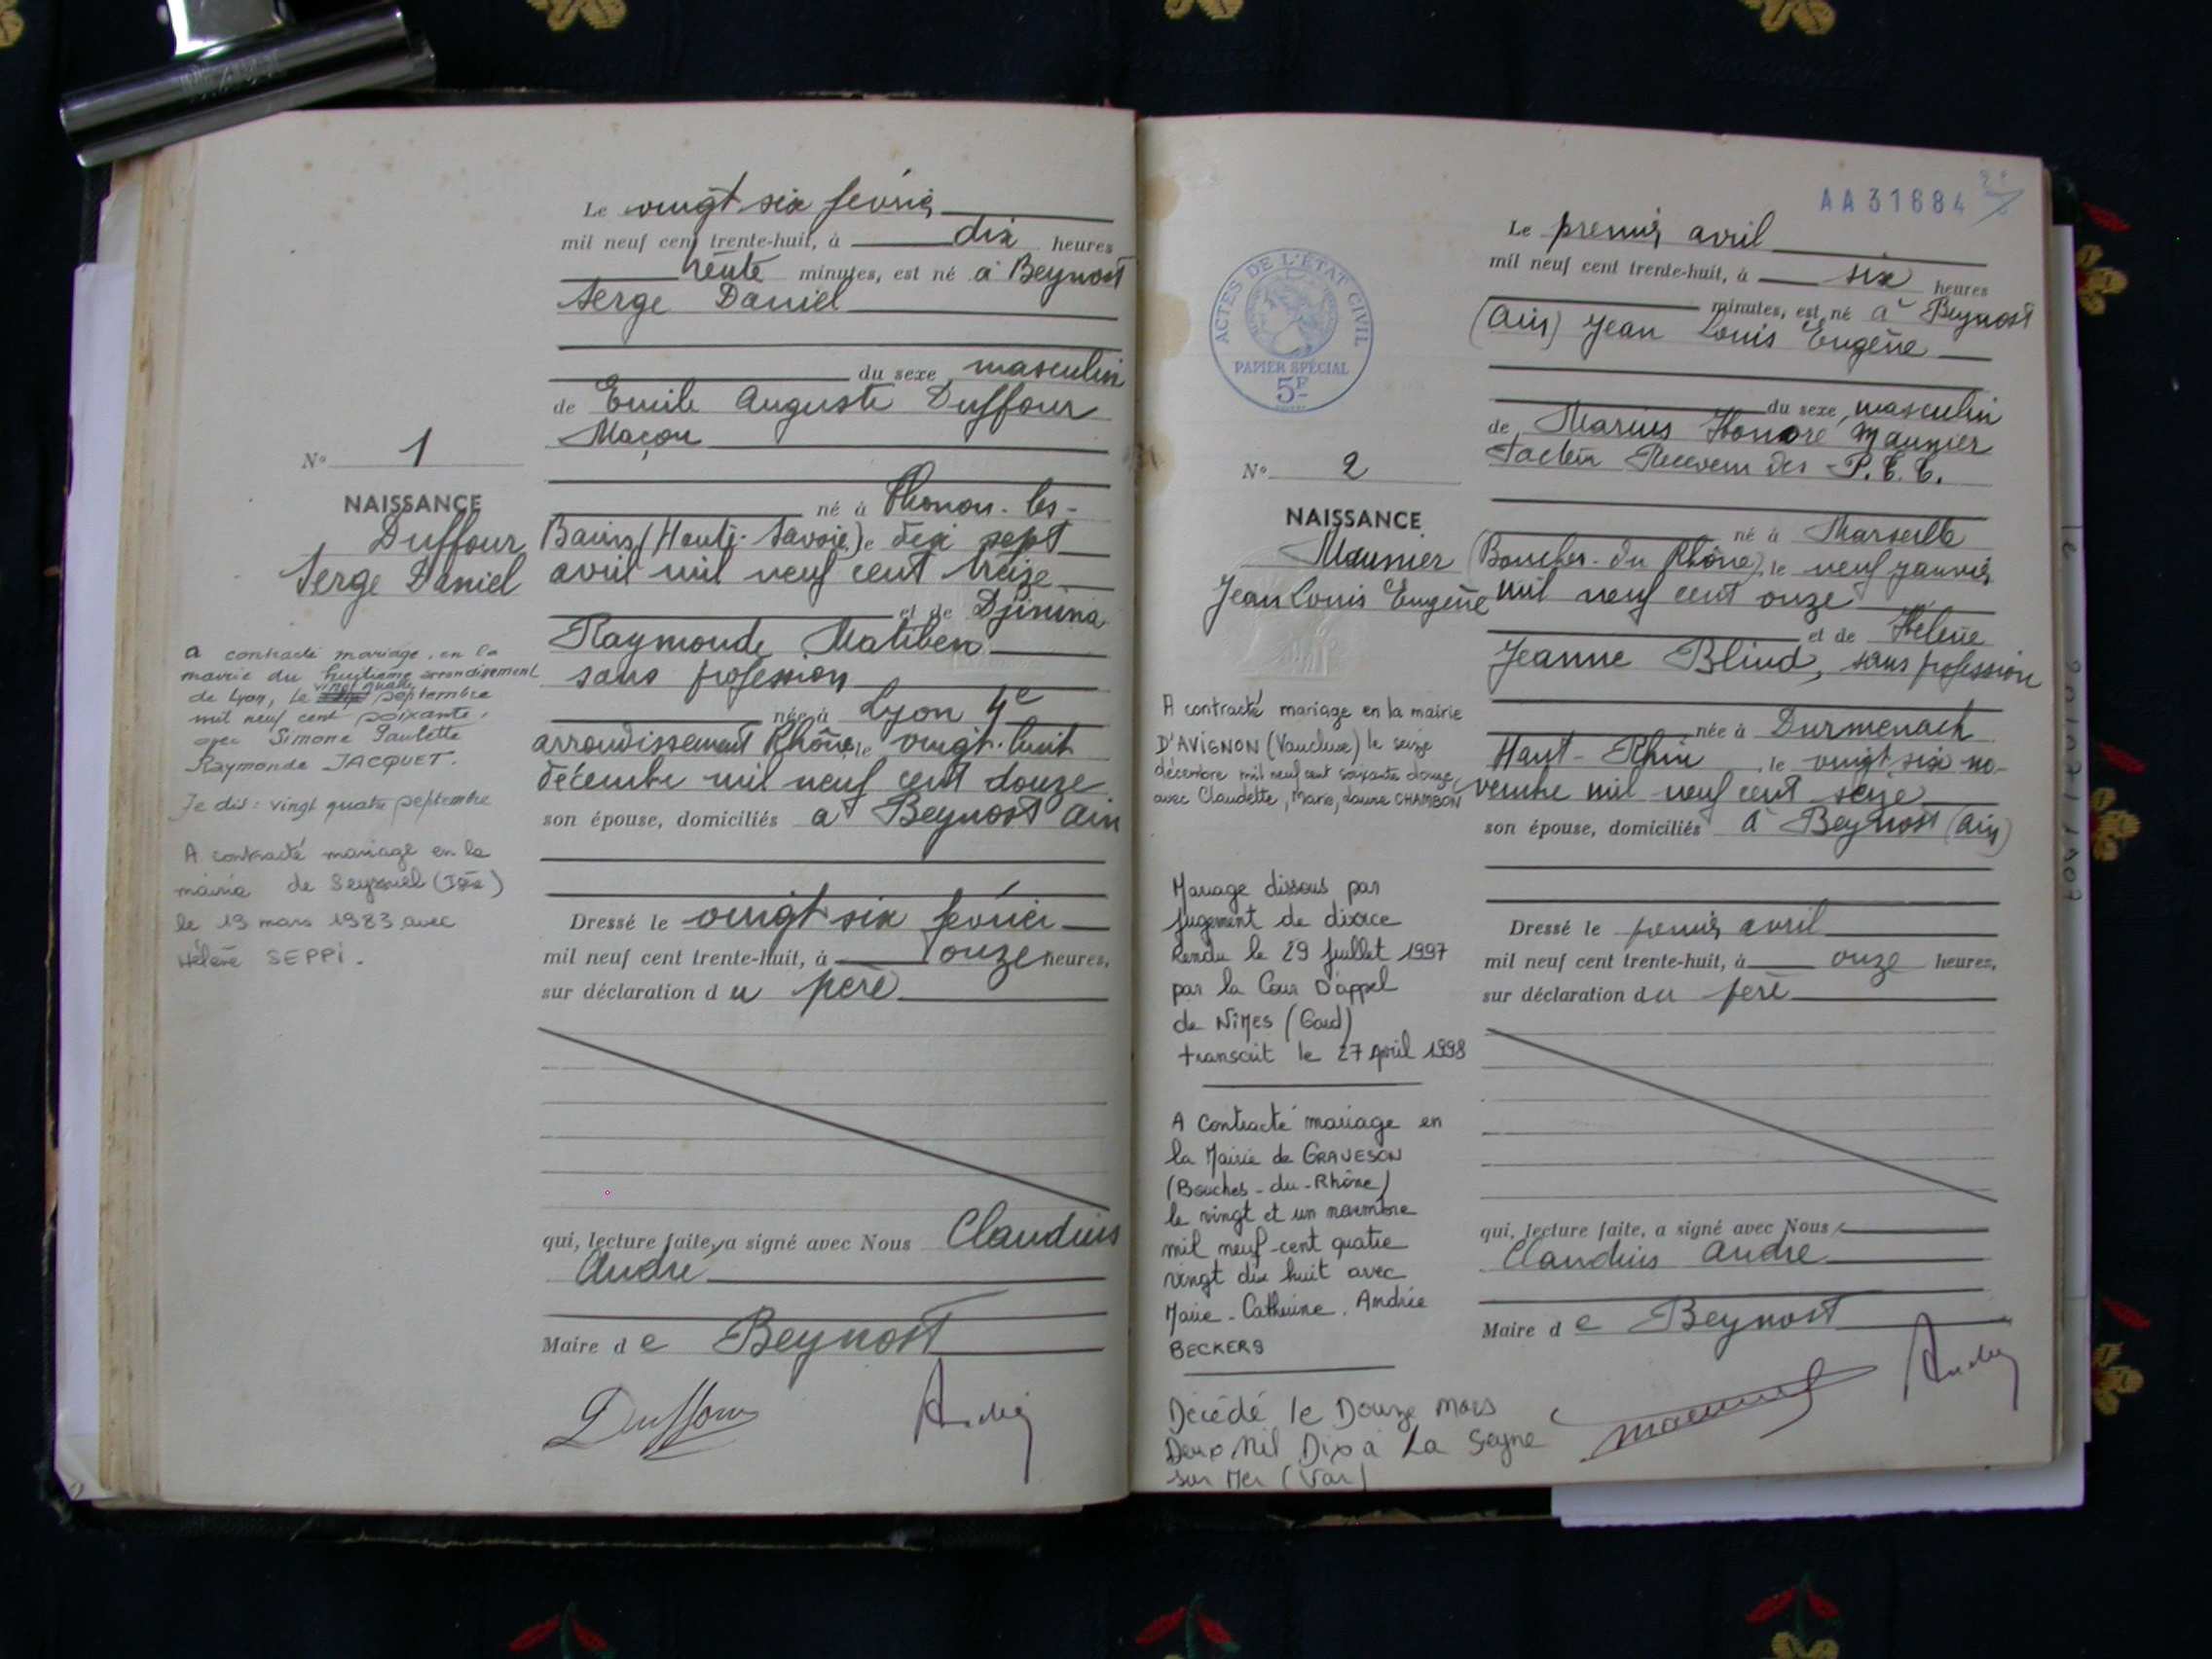 Le vingt six février
mil neuf cent trente-huit, à dix heures
trente minutes, est né à Beynost
Serge Daniel
du sexe masculin
de Emile Auguste Duffour
Maçon
né à Thonon-les-
Bains (Haute-Savoie) le dix sept
avril mil neuf cent treize
et de Djinina
Raymonde Matiben
sans profession
née à Lyon 4e
arrondissement Rhône, le vingt-huit
décembre mil neuf cent douze
son épouse, domiciliés à Beynost Ain
Dressé le vingt six février
mil neuf cent trente-huit, à onze heures,
sur déclaration du père
qui, lecture faite, a signé avec Nous Claudius
André
Maire de Beynost
Duffour
André
N° 1
NAISSANCE
Duffour
Serge Daniel
a contracté mariage, en la
mairie du huitième arrondissement
de Lyon, le vingt quatre septembre
mil neuf cent soixante,
avec Simone Paulette
Raymonde JACQUET.
Je dis : vingt quatre septembre
A contracté mariage en la
mairie de Seyssuel (Isère)
le 19 mars 1983 avec
Hélène SEPPI.
AA31684
Le premier avril
mil neuf cent trente-huit, à six heures
minutes, est né à Beynost
(Ain) Jean Louis Eugène
du sexe masculin
de Marius Honoré Maunier
Facteur Receveur des P.T.T.
né à Marseille
(Bouches-du-Rhône), le neuf janvier
mil neuf cent onze
et de Hélène
Jeanne Blind, sans profession
née à Durmenach
Haut-Rhin, le vingt six no-
vembre mil neuf cent seize
son épouse, domiciliés à Beynost (Ain)
Dressé le premier avril
mil neuf cent trente-huit, à onze heures,
sur déclaration du père
qui, lecture faite, a signé avec Nous,
Claudius André
Maire de Beynost
Maunier
André
ACTES DE L'ÉTAT CIVIL
PAPIER SPÉCIAL
5F
N° 2
NAISSANCE
Maunier
Jean Louis Eugène
A contracté mariage en la mairie
D'AVIGNON (Vaucluse) le seize
décembre mil neuf cent soixante douze,
avec Claudette, Marie, Laure CHAMBON
Mariage dissous par
jugement de divorce
Rendu le 29 Juillet 1997
par la Cour D'appel
de NiMes (Gard)
transcrit le 27 Avril 1998
A Contracté mariage en
la Mairie de GRAVESON
(Bouches-du-Rhône)
le vingt et un novembre
mil neuf-cent quatre
vingt dix huit avec
Marie-Catherine. Andrée
BECKERS
Décédé le Douze Mars
Deux Mil Dix à La Seyne
sur Mer (Var)